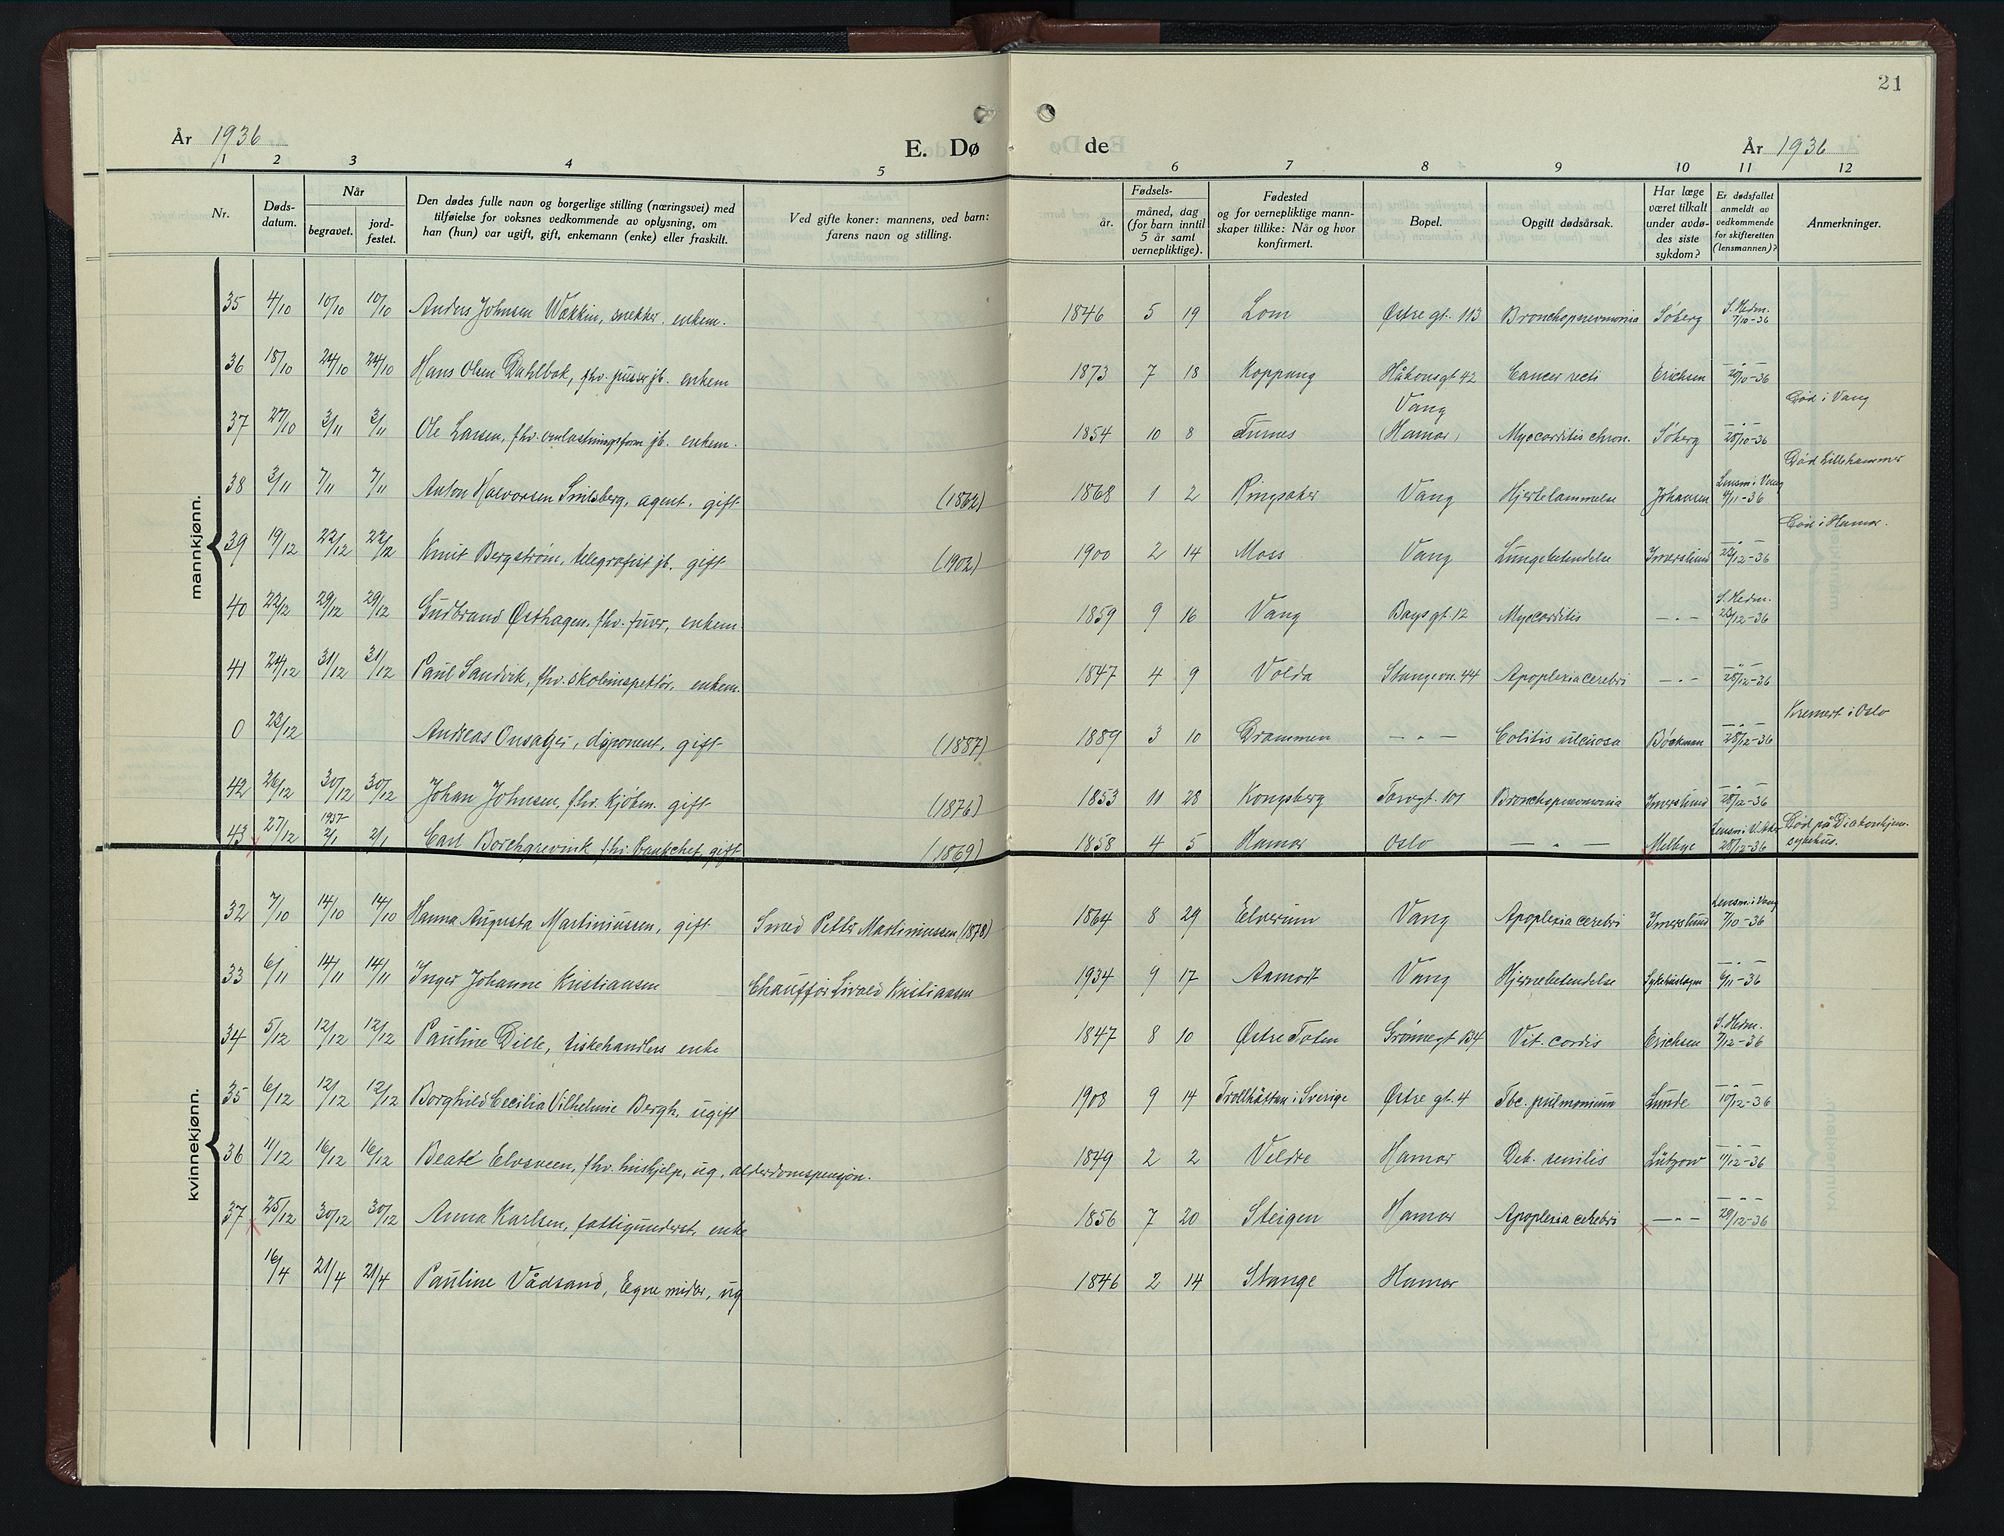 21
År 1936
E. Dø de
År 1936
1 2 3 4 5 6 7 8 9 10 11 12
Nr.
Døds-
datum.
Når
begravet.
jord-
festet.
Den dødes fulle navn og borgerlige stilling (næringsvei) med
tilføielse for voksnes vedkommende av oplysning, om
han (hun) var ugift, gift, enkemann (enke) eller fraskilt.
Ved gifte koner: mannens, ved barn:
farens navn og stilling.
Fødsels-
år.
måned, dag
(for barn inntil
5 år samt
vernepliktige).
Fødested
og for vernepliktige mann-
skaper tillike: Når og hvor
konfirmert.
Bopel.
Opgitt dødsårsak.
Har læge
været tilkalt
under avdø-
des siste
sykdom?
Er dødsfallet
anmeldt av
vedkommende
for skifteretten
(lensmannen)?
Anmerkninger.
mannkjønn.
35 4/10 10/10 10/10 Anders Johnsen Wækkin, snekker, enkem. 1846 5 19 Lom Østre gt. 113 Bronchopneumonia Söberg S. Hedm. 7/10-36
36 18/10 24/10 24/10 Hans Olsen Dahlbak, fhv. pusser jb. enkem 1873 7 18 Koppang Håkonsgt 42 Cancer recti Erichsen — " — 20/10-36
37 27/10 3/11 3/11 Ole Larsen, fhv. omlastningsform jb. enkem. 1854 10 8 Furnes Vang (Hamar) Myocarditis chron. Söberg — " — 28/10-36 Død i Vang
38 3/11 7/11 7/11 Anton Halvorsen Smilsberg, agent, gift (1862) 1868 1 2 Ringsaker Vang Hjertelammelse Johansen Lensm i Vang 4/11-36 Død Lillehammer
39 19/12 22/12 22/12 Knut Bergstrøm, telegrafist jb. gift (1902) 1900 2 14 Moss Vang Lungebetendelse Imerslund — " — 22/12-36 Død i Hamar.
40 22/12 29/12 29/12 Gudbrand Østhagen, fhv. furer, enkem. 1859 9 16 Vang Bagsgt 12 Myocarditis — " — S. Hedm. 28/12-36
41 24/12 31/12 31/12 Paul Sandvik, fhv. skoleinspektør, enkem. 1847 4 9 Volda Stangevn. 44 Apoplexia cerebri — " — — " — 28/12-36
0 23/12 Andreas Onsager, disponent, gift (1887) 1889 3 10 Drammen — " — Colitis ulcerosa Bøckman — " — 28/12-36 Kremert i Oslo
42 26/12 30/12 30/12 Johan Johnsen, fhv. kjøbm. gift (1876) 1853 11 28 Kongsberg Torvgt. 101 Bronchopneumonia Imerslund — " — 28/12-36
43 27/12 1937 2/1 2/1 Carl Borchgrevink fhv. gift (1869) 1858 4 5 Hamar Oslo — " — Melbye Lensm i V. Aker 28/12-36 Død på Diakonhjem. sykehus.
kvinnekjønn.
32 7/10 14/10 14/10 Hanna Augusta Martiniussen, gift Smed Petter Martiniussen (1878) 1864 8 29 Elverum Vang Apoplexia cerebri Imerslund Lensm. i Vang 7/10-36
33 6/11 14/11 14/11 Inger Johanne Kristiansen Chauffør Sivald Kristiansen 1934 9 17 Aamodt Vang Hjernebetendelse Sykehuslegen — " — 6/11-36
34 5/12 12/12 12/12 Pauline Dille, fiskehandlers enke 1847 8 10 Østre Toten Grønnegt 134 Vit. cordis Erichsen S. Hedm. 7/12-36
35 6/12 12/12 12/12 Borghild Cecilia Vilhelmine Bergh, ugift 1908 9 14 Trollhättan i Sverige Østre gt. 4 Tbc. pulmonium Lunde — " — 10/12-36
36 11/12 16/12 16/12 Beate Elvsveen, fhv. hushjelp, ug, alderdomspensjon. 1849 2 2 Veldre Hamar Deb. senilis Lützow — " — 11/12-36
37 25/12 30/12 30/12 Anna Karlsen, fattigunderst, enke 1856 7 20 Steigen Hamar Apoplexia cerebri — " — — " — 29/12-36
16/4 21/4 21/4 Pauline Vådsand, Egne midler, ug 1846 2 14 Stange Hamar